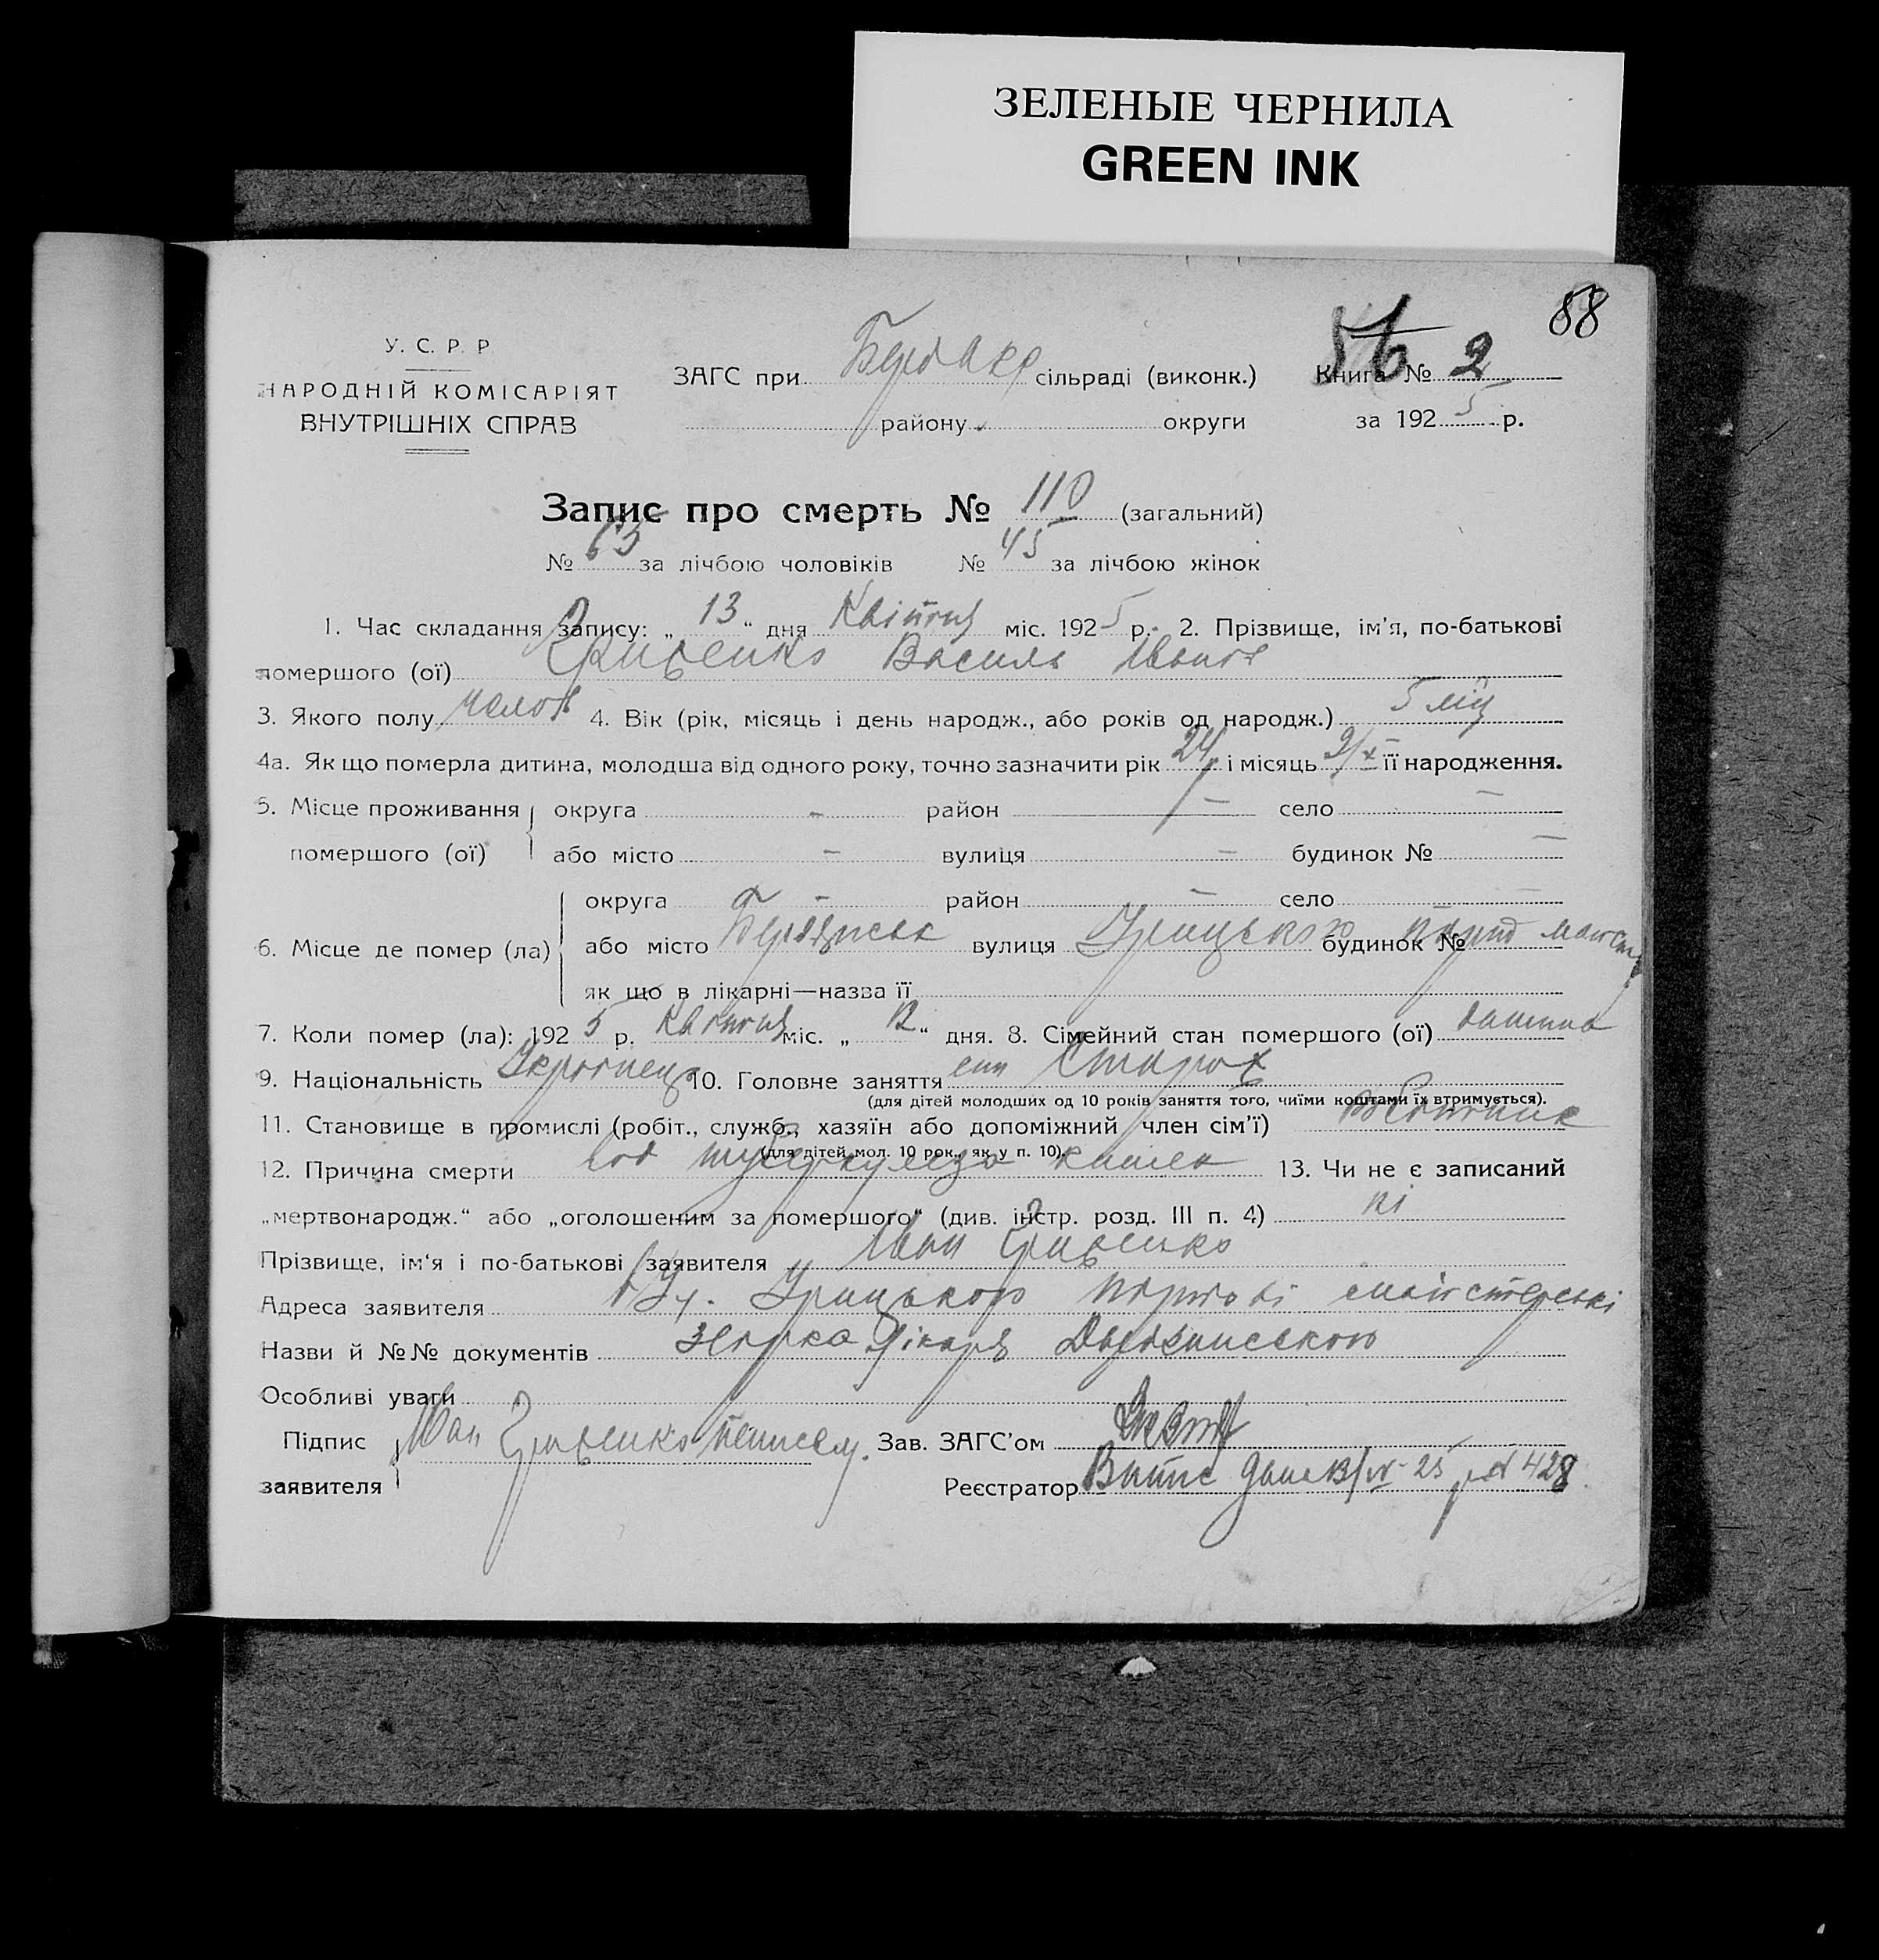 ЗЕЛЕНЫЕ ЧЕРНИЛА
GREEN INK
88
У. С. Р. Р.
НАРОДНІЙ КОМІСАРІЯТ
ВНУТРІШНІХ СПРАВ
ЗАГС при сільраді (виконк.) Книга № 2
району округи за 1925 р.
Запис про смерть № 110 (загальний)
№ 65 за лічбою чоловіків № 45 за лічбою жінок
1. Час складання запису: „ 13 “ дня Квітня міс. 1925 р. 2. Прізвище, ім'я, по-батькові
помершого (ої) Гриценко Василь Іванов
3. Якого полу чолов 4. Вік (рік, місяць і день народж., або років од народж.) 5 міц
4а. Як що померла дитина, молодша від одного року, точно зазначити рік 24 і місяць 9/X її народження.
5. Місце проживання округа – район – село –
помершого (ої) або місто – вулиця – будинок № –
округа – район – село –
6. Місце де помер (ла) або місто Бердянськ вулиця Урицького будинок №
як що в лікарні—назва її
7. Коли помер (ла): 1925 р. Квітня міс. „ 12 “ дня. 8. Сімейний стан помершого (ої) дитина
9. Національність Українец 10. Головне заняття син
(для дітей молодших од 10 років заняття того, чиїми коштами їх втримується).
11. Становище в промислі (робіт., служб., хазяїн або допоміжний член сім'ї) робітник
(для дітей мол. 10 рок., як у п. 10).
12. Причина смерти від туберкульоза 13. Чи не є записаний
„мертвонародж.“ або „оголошеним за помершого“ (див. інстр. розд. III п. 4) ні
Прізвище, ім'я і по-батькові заявителя Іван Гриценко
Адреса заявителя Ву. Урицького портові майстерські
Назви й №№ документів лікаря
Особливі уваги
Підпис Іван Гриценко Зав. ЗАГС'ом
заявителя Реєстратор